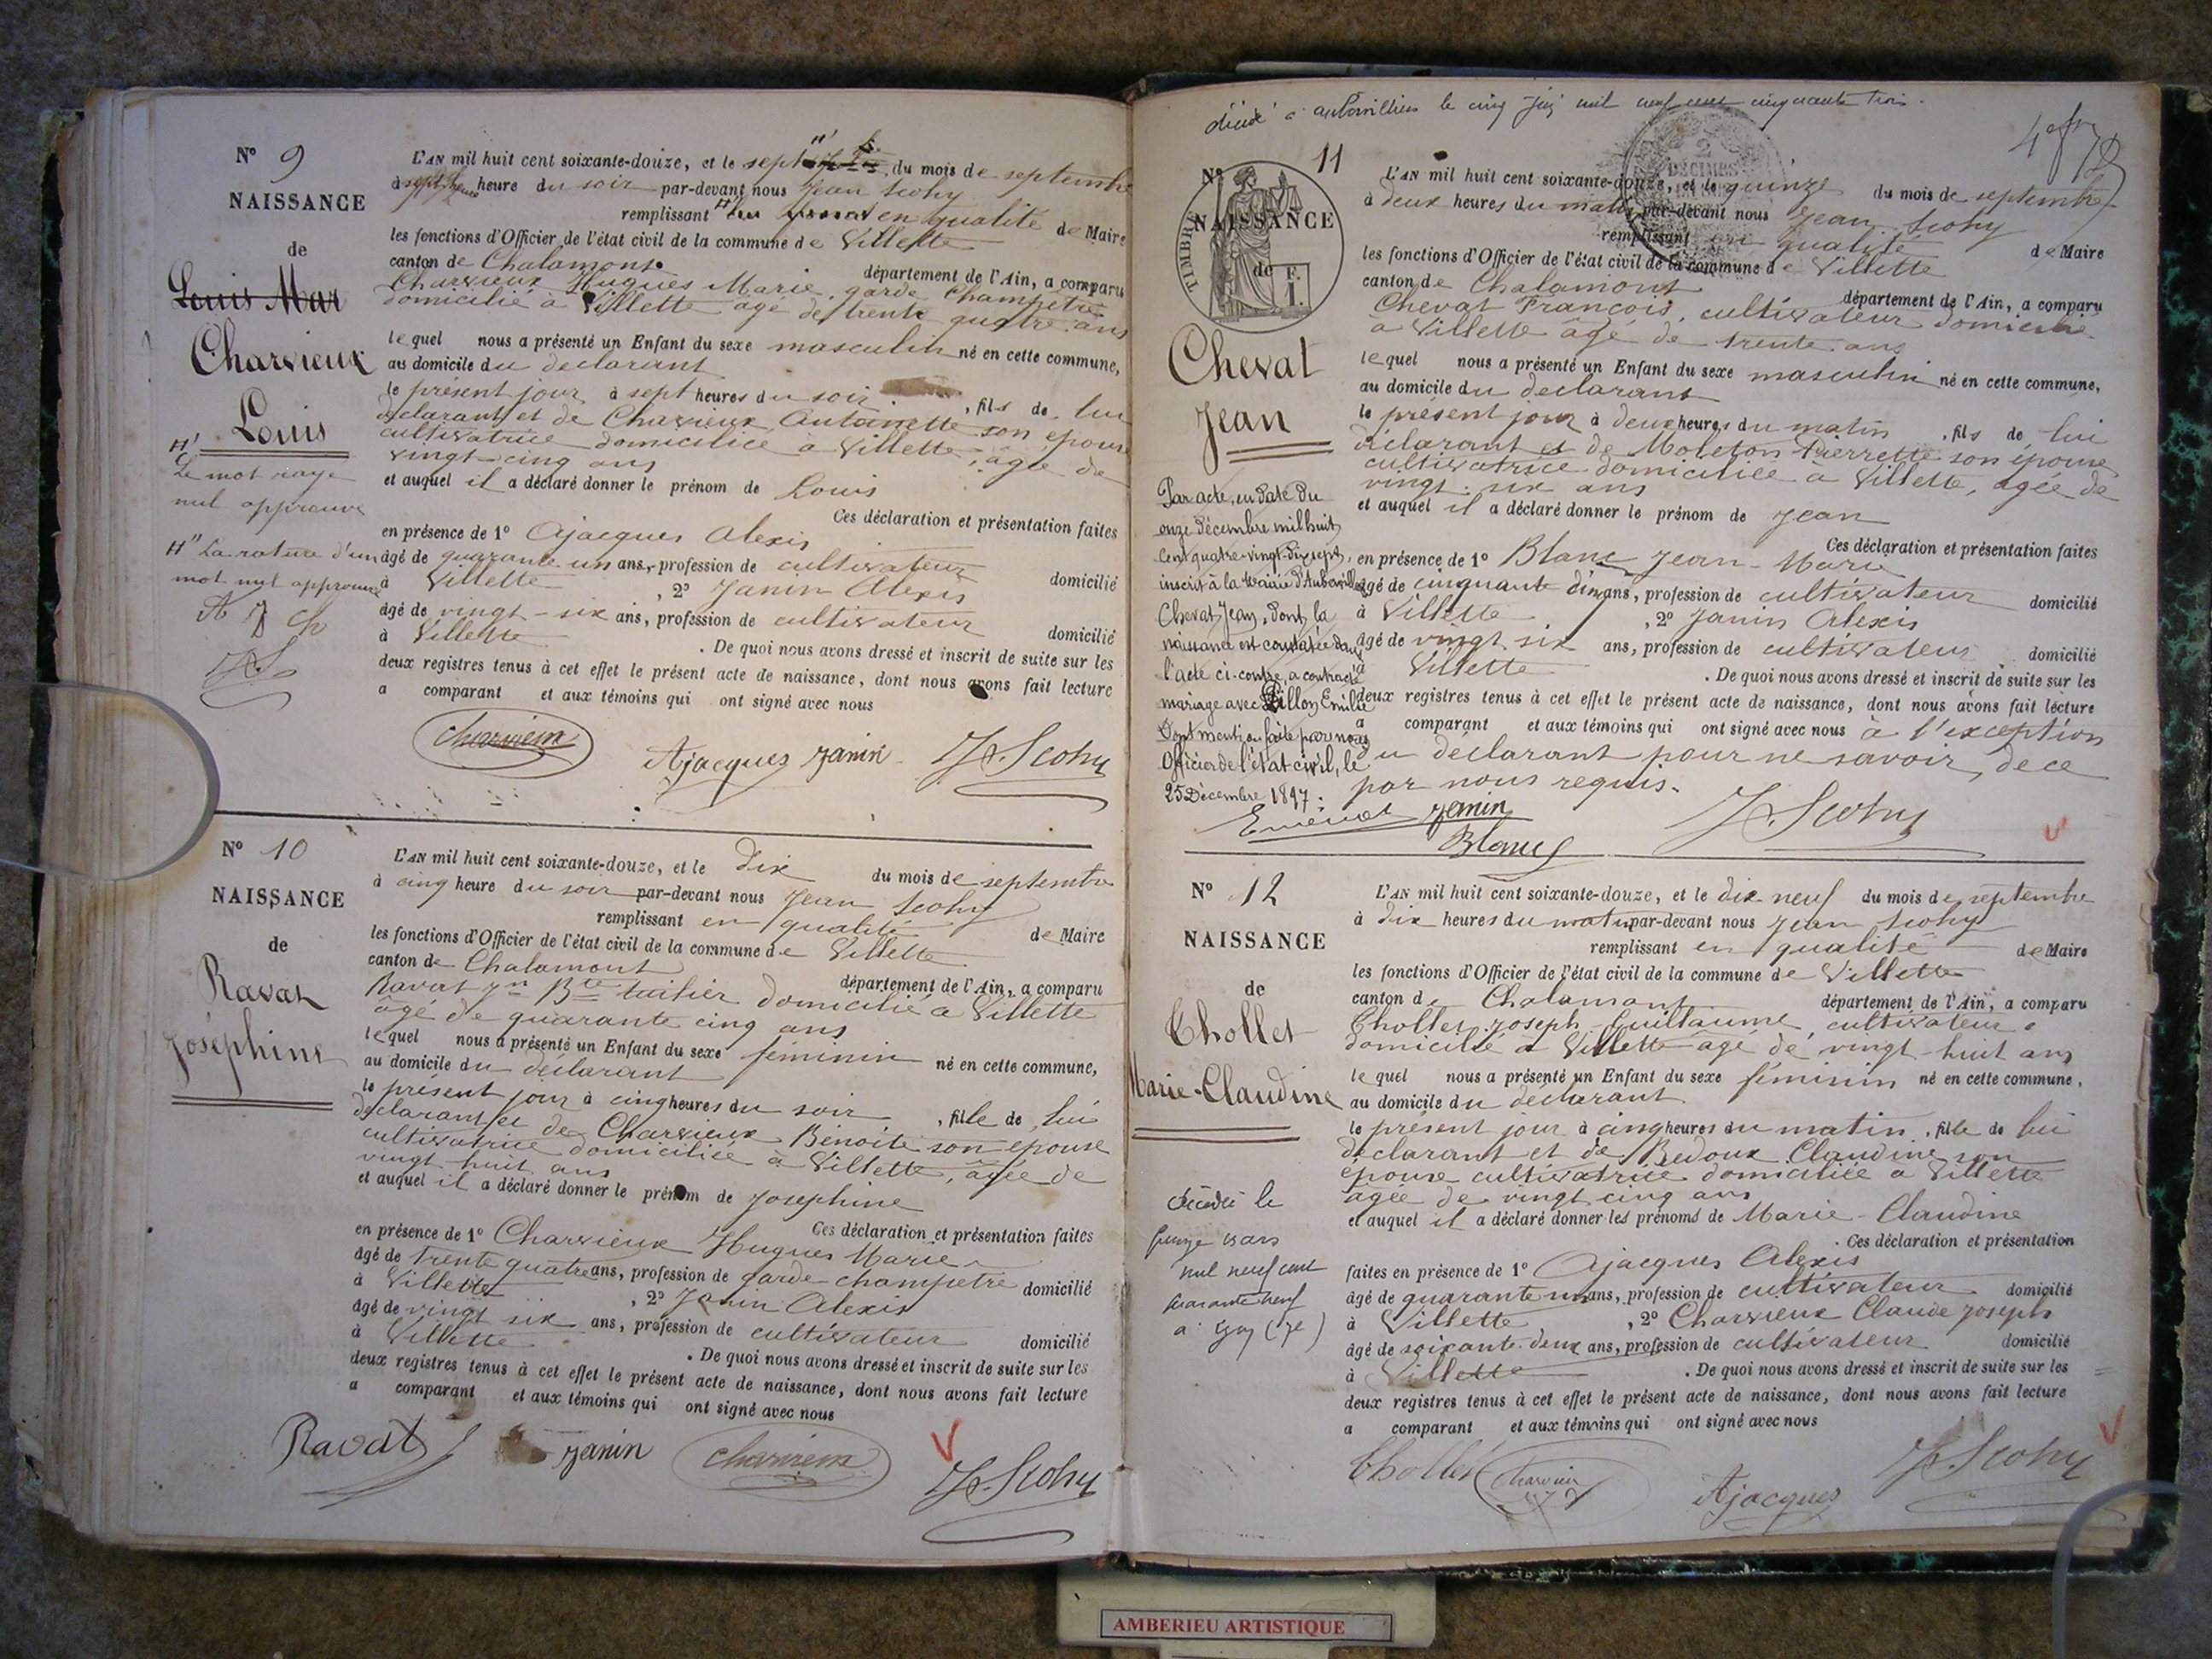 N° 9
NAISSANCE
de
Louis Mar
Charvieux
Louis
Le mot rayé
nul approuvé
H" La rature d'un
mot nul approuvé
L'AN mil huit cent soixante-douze, et le sept du mois de septembre
à sept heure du soir par-devant nous Jean Scohy
remplissant en qualité de Maire
les fonctions d'Officier de l'état civil de la commune de Villette
canton de Chalamont département de l'Ain, a comparu
Charvieux Hugues Marie, garde champêtre
domicilié à Villette âgé de trente quatre ans
lequel nous a présenté un Enfant du sexe masculin né en cette commune,
au domicile du déclarant
le présent jour à sept heures du soir, fils de lui
déclarant et de Charvieux Antoinette son épouse
cultivatrice domiciliée à Villette, âgée de
vingt-cinq ans
et auquel il a déclaré donner le prénom de Louis
Ces déclaration et présentation faites
en présence de 1° Ajacques Alexis
âgé de quarante un ans, profession de cultivateur
domicilié
à Villette, 2° Janin Alexis
âgé de vingt-six ans, profession de cultivateur
domicilié
à Villette. De quoi nous avons dressé et inscrit de suite sur les
deux registres tenus à cet effet le présent acte de naissance, dont nous avons fait lecture
a comparant et aux témoins qui ont signé avec nous
Charvieux
Ajacques Janin J. Scohy
N° 10
NAISSANCE
de
Ravat
Joséphine
L'AN mil huit cent soixante-douze, et le dix du mois de septembre
à cinq heure du soir par-devant nous Jean Scohy
remplissant en qualité de Maire
les fonctions d'Officier de l'état civil de la commune de Villette
canton de Chalamont département de l'Ain, a comparu
Ravat Jn Bte tuilier domicilié à Villette
âgé de quarante cinq ans
lequel nous a présenté un Enfant du sexe féminin né en cette commune,
au domicile du déclarant
le présent jour à cinq heures du soir, fille de lui
déclarant et de Charvieux Benoite son épouse
cultivatrice domiciliée à Villette, âgée de
vingt huit ans
et auquel il a déclaré donner le prénom de Josephine
Ces déclaration et présentation faites
en présence de 1° Charvieux Hugues Marie
âgé de trente quatre ans, profession de garde-champêtre domicilié
à Villette, 2° Janin Alexis
âgé de vingt six ans, profession de cultivateur
domicilié
à Villette. De quoi nous avons dressé et inscrit de suite sur les
deux registres tenus à cet effet le présent acte de naissance, dont nous avons fait lecture
a comparant et aux témoins qui ont signé avec nous
Ravat Janin Charvieux J. Scohy
décédé à Aubervilliers le cinq mil neuf cent cinquante trois.
N° 11
NAISSANCE
de
TIMBRE
Chevat
Jean
Par acte, en date du
onze décembre mil huit
cent quatre-vingt-dix-sept,
inscrit à la Mairie d'Aubervilliers
Chevat Jean, dont la
naissance est constatée dans
l'acte ci-contre, a contracté
mariage avec Billon Emilie
Dont mention faite par nous
Officier de l'état civil, le
25 Décembre 1897.
2
DÉCIMES
L'AN mil huit cent soixante-douze, et le quinze du mois de septembre
à deux heures du matin par-devant nous Jean Scohy
remplissant en qualité de Maire
les fonctions d'Officier de l'état civil de la commune de Villette
canton de Chalamont département de l'Ain, a comparu
Chevat François, cultivateur domicilié
à Villette âgé de trente ans
lequel nous a présenté un Enfant du sexe masculin né en cette commune,
au domicile du déclarant
le présent jour à deux heures du matin, fils de lui
déclarant et de Moleton Pierrette son épouse
cultivatrice domiciliée à Villette, âgée de
vingt-six ans
et auquel il a déclaré donner le prénom de Jean
Ces déclaration et présentation faites
en présence de 1° Blanc Jean-Marie
âgé de cinquante cinq ans, profession de cultivateur
domicilié
à Villette, 2° Janin Alexis
âgé de vingt six ans, profession de cultivateur
domicilié
à Villette. De quoi nous avons dressé et inscrit de suite sur les
deux registres tenus à cet effet le présent acte de naissance, dont nous avons fait lecture
a comparant et aux témoins qui ont signé avec nous à l'exception
du déclarant pour ne savoir, de ce
par nous requis.
Janin J. Scohy
Blanc
N° 12
NAISSANCE
de
Chollet
Marie-Claudine
décédée le
quinze mars
mil neuf cent
quarante neuf
L'AN mil huit cent soixante-douze, et le dix neuf du mois de septembre
à dix heures du matin par-devant nous Jean Scohy
remplissant en qualité de Maire
les fonctions d'Officier de l'état civil de la commune de Villette
canton de Chalamont département de l'Ain, a comparu
Chollet Joseph Guillaume, cultivateur
domicilié à Villette âgé de vingt-huit ans
lequel nous a présenté un Enfant du sexe féminin né en cette commune,
au domicile du déclarant
le présent jour à cinq heures du matin, fille de lui
déclarant et de Bedoux Claudine son
épouse cultivatrice domiciliée à Villette
âgée de vingt cinq ans
et auquel il a déclaré donner les prénoms de Marie-Claudine
Ces déclaration et présentation
faites en présence de 1° Ajacques Alexis
âgé de quarante un ans, profession de cultivateur domicilié
à Villette, 2° Charvieux Claude Joseph
âgé de soixante-deux ans, profession de cultivateur domicilié
à Villette. De quoi nous avons dressé et inscrit de suite sur les
deux registres tenus à cet effet le présent acte de naissance, dont nous avons fait lecture
a comparant et aux témoins qui ont signé avec nous
Chollet Charvieux Ajacques J. Scohy
AMBERIEU ARTISTIQUE